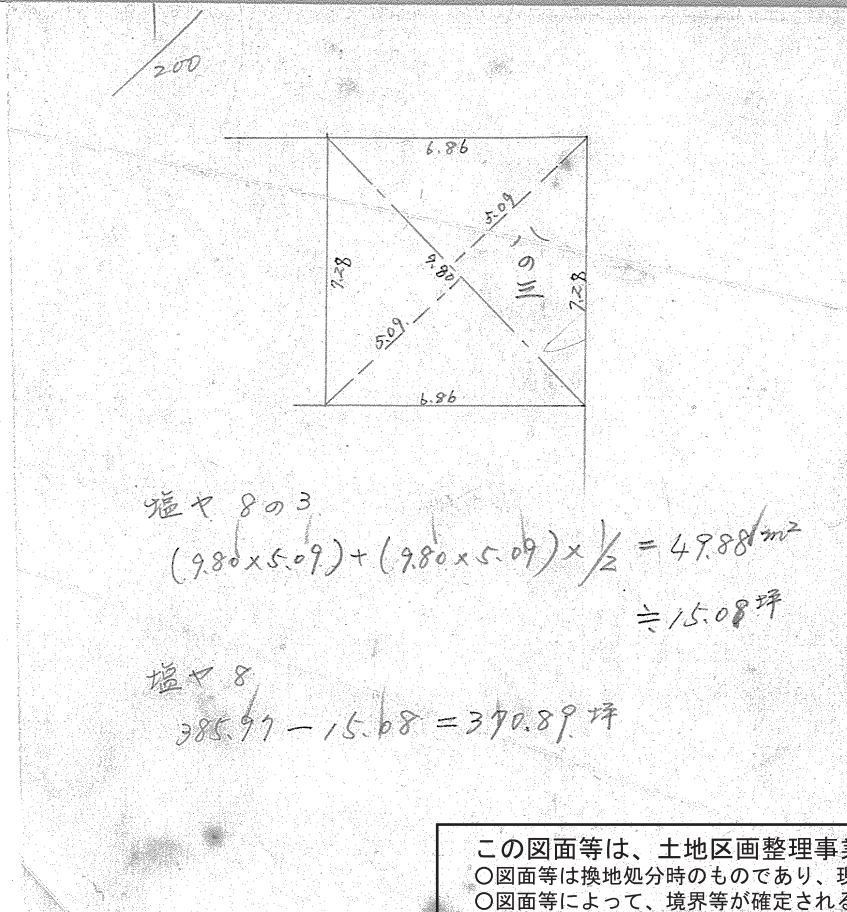 1/200
6.86
5.09
7.28
9.80
八の三
7.28
5.09
6.86
塩ヤ 8の3
(9.80×5.09)+(9.80×5.09)×1/2 = 49.881m²
≒15.08坪
塩ヤ 8
385.97-15.08=370.89坪
この図面等は、土地区画整理事業
○図面等は換地処分時のものであり、現
○図面等によって、境界等が確定される